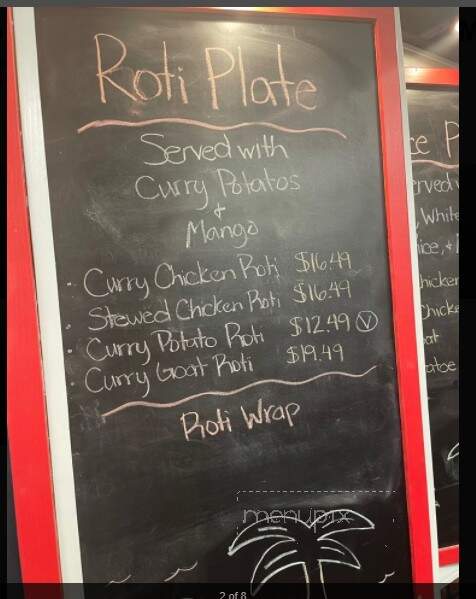 Roti Plate
Served with
Curry Potatos
+
Mango
• Curry Chicken Roti $16.49
• Stewed Chicken Roti $16.49
• Curry Potato Roti $12.49 Ⓥ
• Curry Goat Roti $19.49
Roti Wrap
menupix
2 of 8